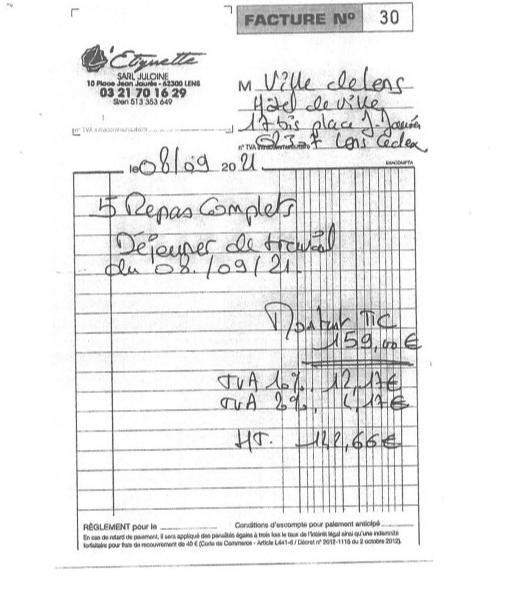 FACTURE Nº 30
L'Etiquette
SARL JULCINE
10 Place Jean Jaurès - 62300 LENS
03 21 70 16 29
Siren 513 353 649
M Ville de Lens
Hôtel de Ville
17 bis place J. Jaurès
Lens Cedex
n° TVA Intracommunautaire
le 08/09 2021
EXACOMPTA
5 Repas Complets
Déjeuner de travail
du 08/09/21.
Montant TTC
159,00 €
TVA 10%. 12,17€
TVA 20%. 4,17€
HT. 142,66€
RÈGLEMENT pour le Conditions d'escompte pour paiement anticipé
En cas de retard de paiement, il sera appliqué des pénalités égales à trois fois le taux de l'intérêt légal ainsi qu'une indemnité
forfaitaire pour frais de recouvrement de 40 € (Code de Commerce - Article L441-6 / Décret n° 2012-1115 du 2 octobre 2012).